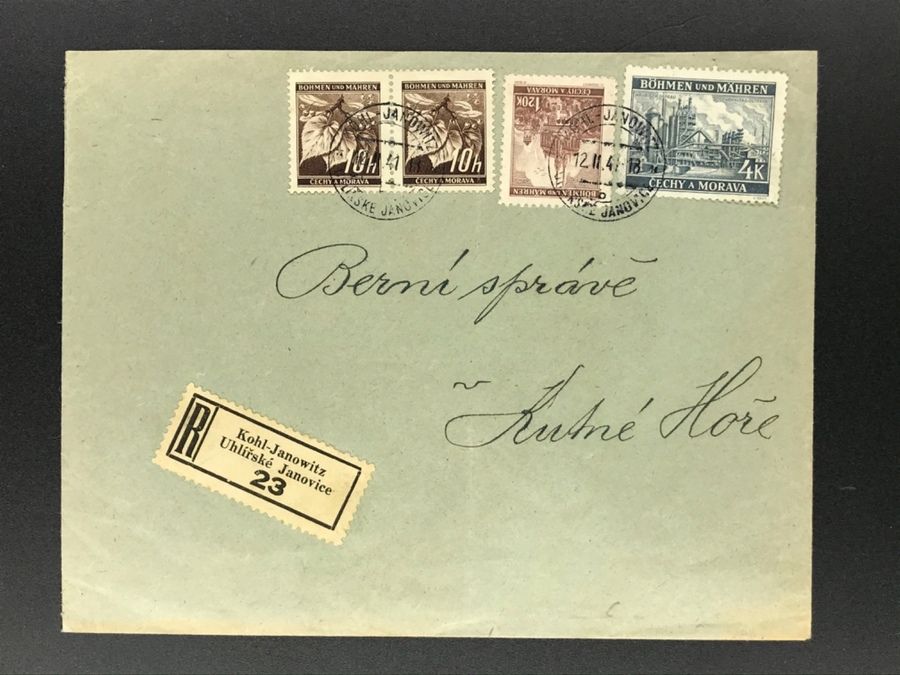 BÖHMEN UND MÄHREN
10h
ČECHY A MORAVA
BÖHMEN UND MÄHREN
10h
ČECHY A MORAVA
ČECHY A MORAVA
1.20K
BÖHMEN UND MÄHREN
BÖHMEN UND MÄHREN
4K
ČECHY A MORAVA
KOHL-JANOWITZ
12.II.41
UHLÍŘSKÉ JANOVICE
KOHL-JANOWITZ
12.II.41-18
UHLÍŘSKÉ JANOVICE
Berní správě
v
Kutné Hoře
R
Kohl-Janowitz
Uhlířské Janovice
23